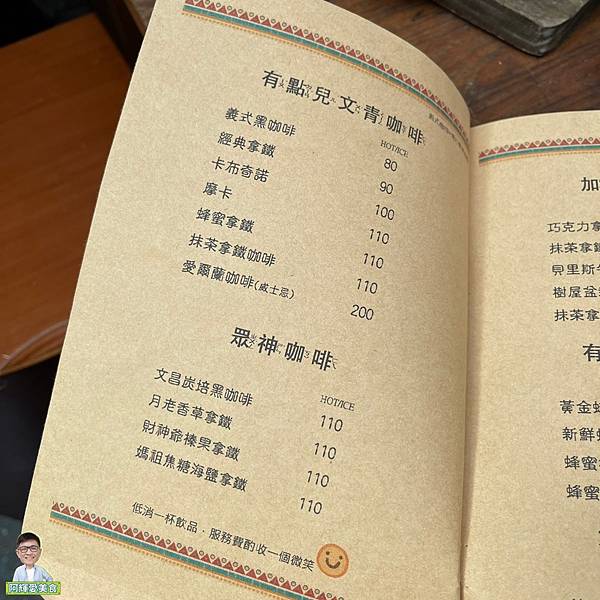 有點兒文青咖啡
HOT/ICE
義式黑咖啡 80
經典拿鐵 90
卡布奇諾 100
摩卡 110
蜂蜜拿鐵 110
抹茶拿鐵咖啡 110
愛爾蘭咖啡(威士忌) 200
眾神咖啡
HOT/ICE
文昌炭焙黑咖啡 110
月老香草拿鐵 110
財神爺榛果拿鐵 110
媽祖焦糖海鹽拿鐵 110
低消一杯飲品，服務費酌收一個微笑
加
巧克力拿
抹茶拿鐵
貝里斯
樹屋盆
抹茶拿
有
黃金蜂
新鮮
蜂蜜
蜂蜜
阿輝愛美食